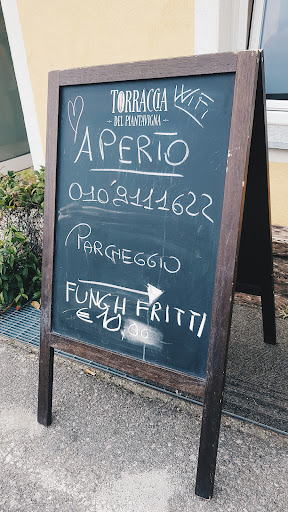 TORRACCIA
DEL PIANTAVIGNA
WIFI
APERTO
010 9111622
PARCHEGGIO
FUNGHI FRITTI
€ 10,00